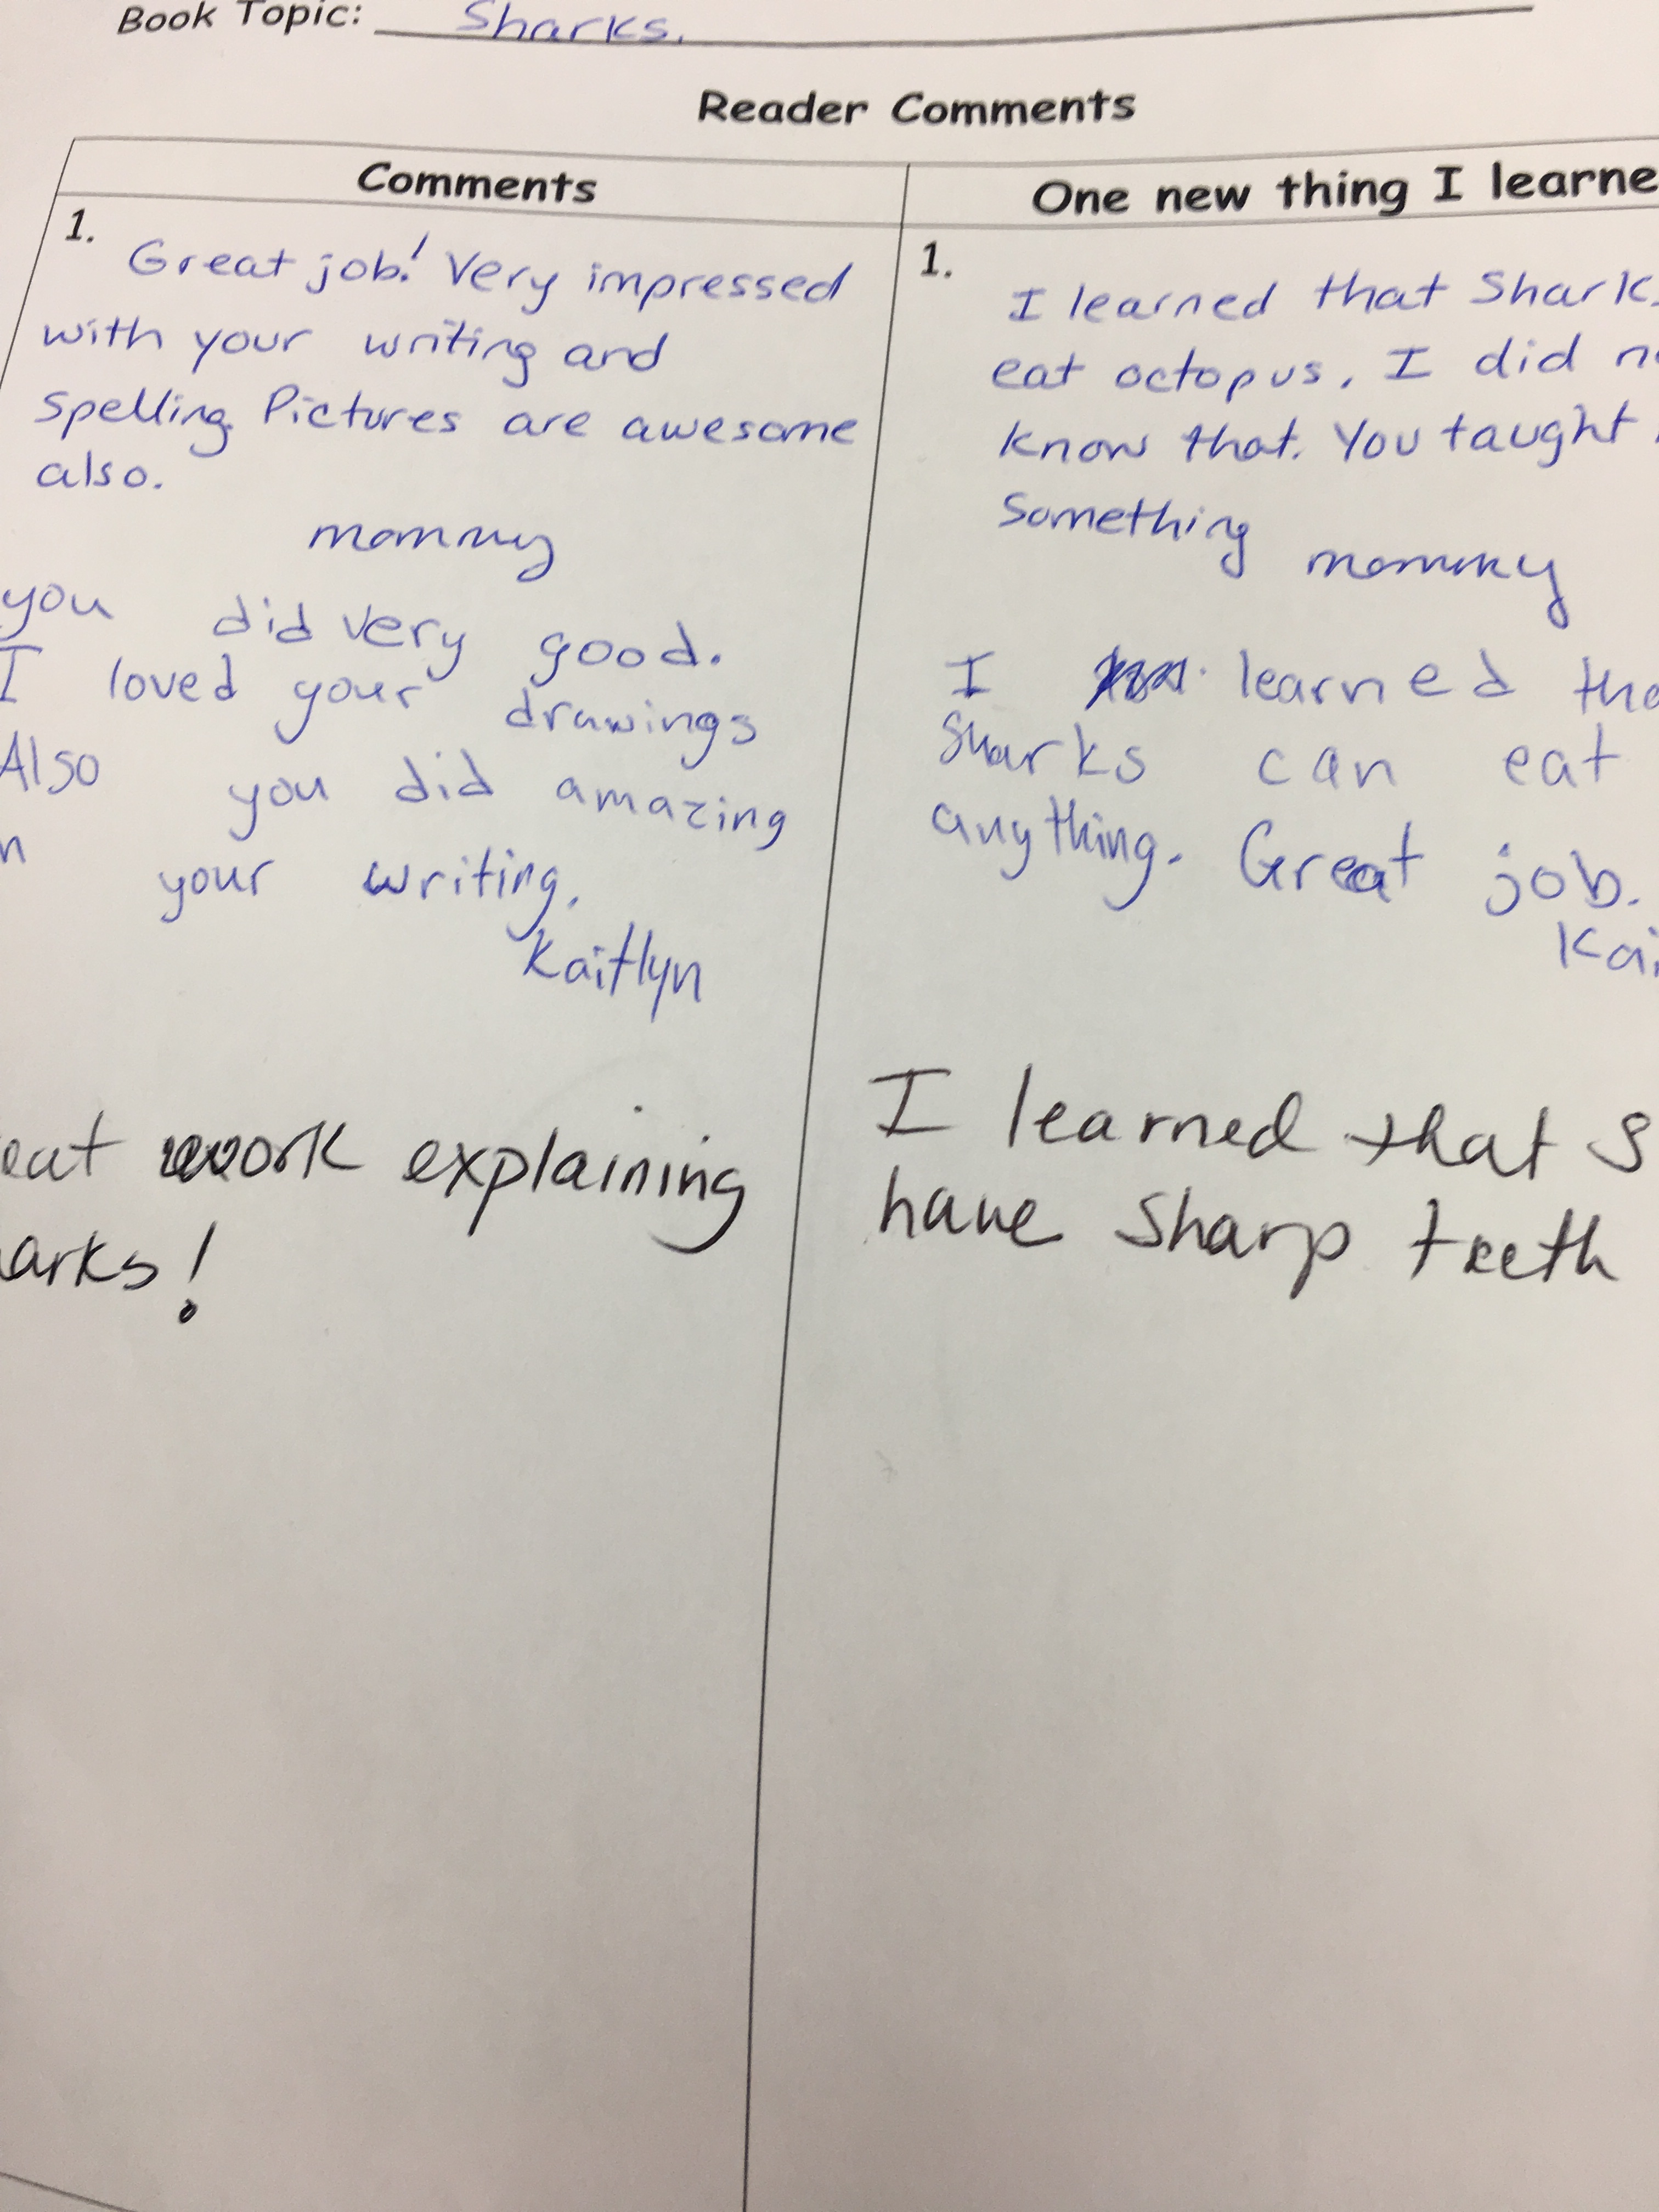 Book Topic: Sharks.
Reader Comments
Comments
1. Great job! Very impressed
with your writing and
spelling. Pictures are awesome
also.
mommy
you did very good.
I loved your drawings
Also you did amazing
n your writing.
Kaitlyn
eat work explaining
arks!
One new thing I learne
1. I learned that Sharks
eat octopus. I did n
know that. You taught
Something mommy
I learned tha
Sharks can eat
anything. Great job.
Kai
I learned that S
have sharp teeth